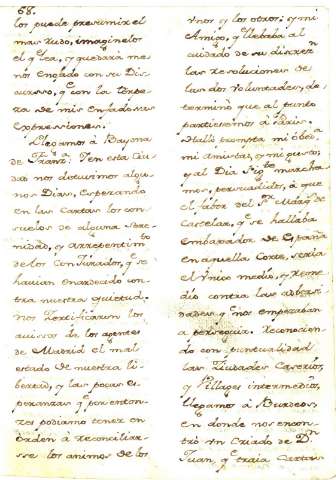 68.
los puede presumir el
mas rudo, imaginelos
el q.e lea, y quedará me
nos enfado con su Dis
curso, q.e con la tempe
ra de mis enfadosas
expressiones.
Llegamos à Bayona
de Franz.a Y en esta Ciu
dad nos detuvimos algu
nos Dias, esperando
en las Cartas los con
suelos de alguna sere
nidad, y arrepentim.to
de los Conjurados, q.e se
havian enardecido con
tra nuestra quietud.
Nos Zertificaron los
avissos de los agentes
de Madrid el mal
estado de nuestra li
bertad, y las pocas es
peranzas q.e por enton
zes podiamo tener en
orden à reconciliar
se los animos de los
unos y los otros; y mi
Amigo, q.e llebaba al
cuidado de su discrez.n
las resoluciones de
las dos voluntades, de
terminò que al punto
partiesemos à Paris.
Hallò prompta mi obed.a
mi amistad, y mi gusto,
y al Dia Sig.te marcha
mos, persuadidos, à que
el fabor del S.r Marq.s de
Castelar, q.e se hallaba
Embaxador de España
en aquella Corte, seria
el vnico medio, y Reme
dio contra las adbersi
dades q.e nos empezaban
à perseguir. Reconocien
do con puntualidad
las Ciudades Caserios,
y Villages intermedios,
llegamos à Burdeos,
en donde nos encon
trò vn Criado de D.n
Juan, q.e traia Cartas